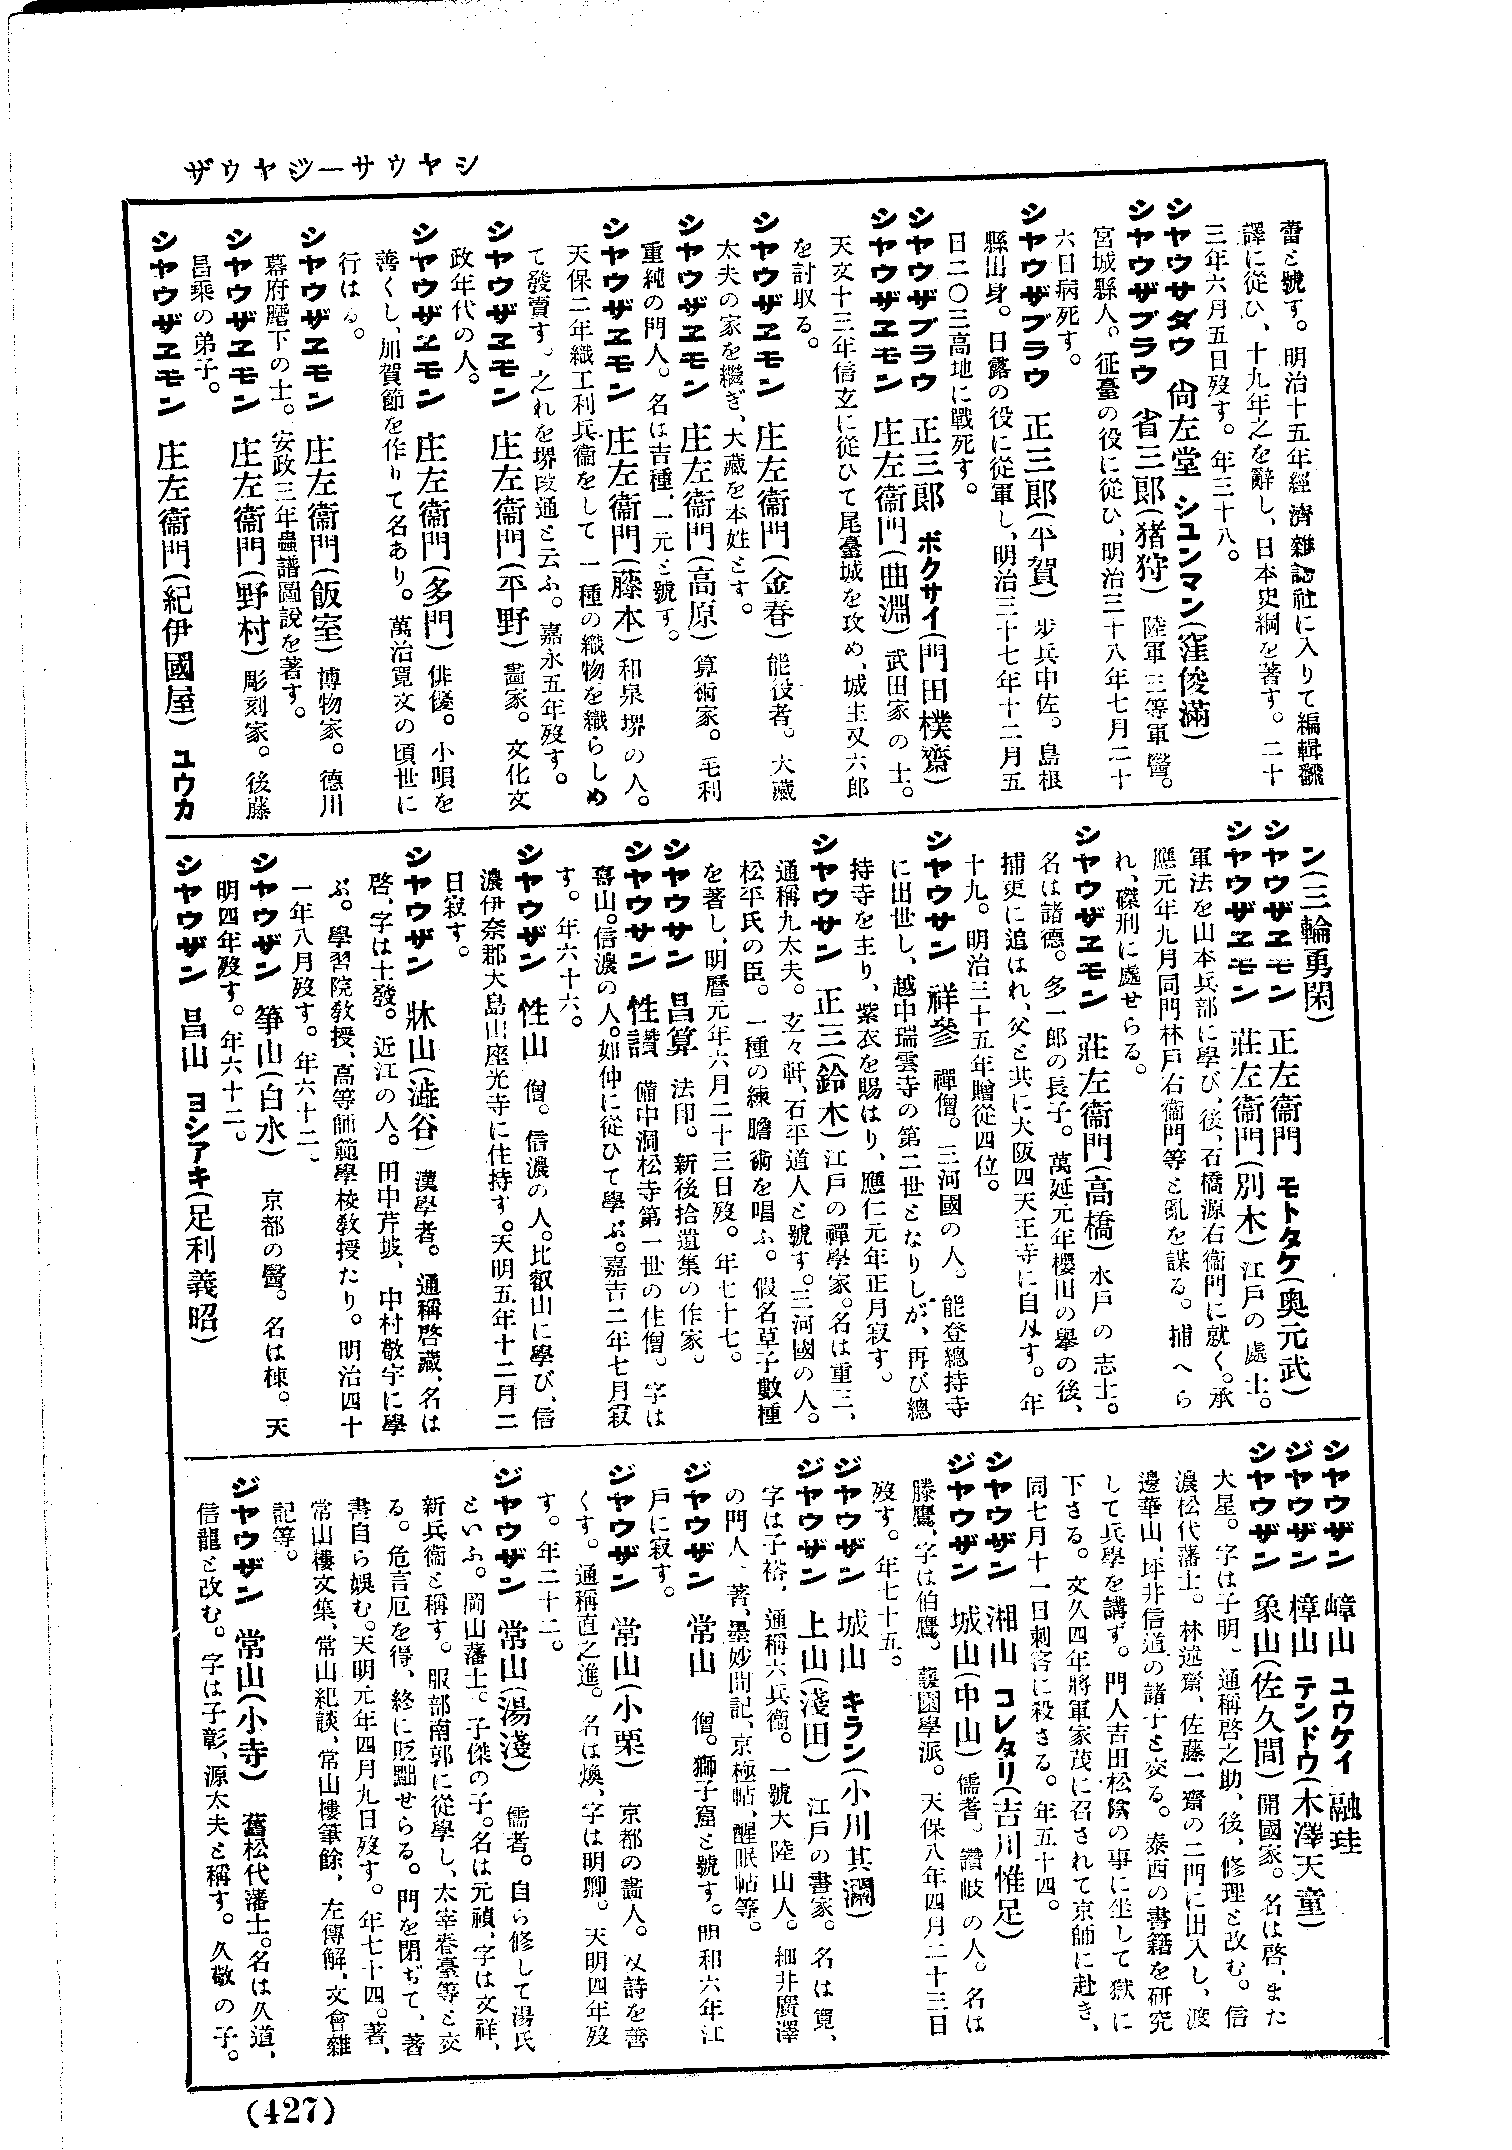 シヤウサ―ジヤウザ
蕾と號す。明治十五年經濟雜誌社に入りて編輯飜
譯に從ひ、十九年之を辭し、日本史綱を著す。二十
三年六月五日歿す。年三十八。
シヤウサダウ 尙左堂 シユンマン(窪俊滿)
シヤウザブラウ 省三郞(猪狩) 陸軍三等軍醫。
宮城縣人。征臺の役に從ひ、明治三十八年七月二十
六日病死す。
シヤウザブラウ 正三郞(平賀) 步兵中佐。島根
縣出身。日露の役に從軍し、明治三十七年十二月五
日二〇三高地に戰死す。
シヤウザブラウ 正三郞 ボクサイ(門田樸齋)
シヤウザヱモン 庄左衞門(曲淵) 武田家の士。
天文十三年信玄に從ひて尾臺城を攻め、城主又六郞
を討取る。
シヤウザヱモン 庄左衞門(金春) 能役者。大藏
太夫の家を繼ぎ、大藏を本姓とす。
シヤウザヱモン 庄左衞門(高原) 算術家。毛利
重純の門人。名は吉種、一元と號す。
シヤウザヱモン 庄左衞門(藤本) 和泉堺の人。
天保二年織工利兵衞をして一種の織物を織らしめ
て發賣す。之れを堺段通と云ふ。嘉永五年歿す。
シヤウザヱモン 庄左衞門(平野) 畵家。文化文
政年代の人。
シヤウザヱモン 庄左衞門(多門) 俳優。小唄を
善くし、加賀節を作りて名あり。萬治寬文の頃世に
行はる。
シヤウザヱモン 庄左衞門(飯室) 博物家。德川
幕府麾下の士。安政三年蟲譜圖說を著す。
シヤウザヱモン 庄左衞門(野村) 彫刻家。後藤
昌乘の弟子。
シヤウザヱモン 庄左衞門(紀伊國屋) ユウカ
ン(三輪勇閑)
シヤウザヱモン 正左衞門 モトタケ(奧元武)
シヤウザヱモン 莊左衞門(別木) 江戶の處士。
軍法を山本兵部に學び、後、石橋源右衞門に就く。承
應元年九月同門林戶右衞門等と亂を謀る。捕へら
れ、磔刑に處せらる。
シヤウザヱモン 莊左衞門(高橋) 水戶の志士。
名は諸德。多一郞の長子。萬延元年櫻田の擧の後、
捕吏に追はれ、父と共に大阪四天王寺に自刄す。年
十九。明治三十五年贈從四位。
シヤウサン 祥參 禪僧。三河國の人。能登總持寺
に出世し、越中瑞雲寺の第二世となりしが、再び總
持寺を主り、紫衣を賜はり、應仁元年正月寂す。
シヤウサン 正三(鈴木) 江戶の禪學家。名は重三、
通稱九太夫。玄々軒、石平道人と號す。三河國の人。
松平氏の臣。一種の練膽術を唱ふ。假名草子數種
を著し、明曆元年六月二十三日歿。年七十七。
シヤウサン 昌算 法印。新後拾遺集の作家。
シヤウサン 性讃 備中洞松寺第一世の住僧。字は
喜山。信濃の人。如仲に從ひて學ぶ。嘉吉二年七月寂
す。年六十六。
シヤウザン 性山 僧。信濃の人。比叡山に學び、信
濃伊奈郡大島山座光寺に住持す。天明五年十二月二
日寂す。
シヤウザン 牀山(澁谷) 漢學者。通稱啓藏、名は
啓、字は士發。近江の人。田中芹坡、中村敬宇に學
ぶ。學習院敎授、高等師範學校敎授たり。明治四十
一年八月歿す。年六十二。
シヤウザン 箏山(白水) 京都の醫。名は棟。天
明四年歿す。年六十二。
シヤウザン 昌山 ヨシアキ(足利義昭)
シヤウザン 嶂山 ユウケイ 融珪
ジヤウザン 樟山 テンドウ(木澤天童)
シヤウザン 象山(佐久間) 開國家。名は啓、また
大星。字は子明。通稱啓之助、後、修理と改む。信
濃松代藩士。林述齋、佐藤一齋の二門に出入し、渡
邊華山、坪井信道の諸子と交る。泰西の書籍を硏究
して兵學を講ず。門人吉田松陰の事に坐して獄に
下さる。文久四年將軍家茂に召されて京師に赴き、
同七月十一日刺客に殺さる。年五十四。
シヤウザン 湘山 コレタリ(吉川惟足)
ジヤウザン 城山(中山) 儒者。讚岐の人。名は
滕鷹、字は伯鷹。蘐園學派。天保八年四月二十三日
歿す。年七十五。
ジヤウザン 城山 キラン(小川其瀾)
ジヤウザン 上山(淺田) 江戶の書家。名は寬、
字は子裕、通稱六兵衞。一號大陸山人。細井廣澤
の門人。著、墨妙閒記、京極帖、醒眠帖等。
ジヤウザン 常山 僧。獅子窟と號す。明和六年江
戶に寂す。
ジヤウザン 常山(小栗) 京都の畵人。又詩を善
くす。通稱直之進。名は煥、字は明卿。天明四年歿
す。年二十二。
ジヤウザン 常山(湯淺) 儒者。自ら修して湯氏
といふ。岡山藩士。子傑の子。名は元禎、字は文祥、
新兵衞と稱す。服部南郭に從學し、太宰春臺等と交
る。危言厄を得、終に貶黜せらる。門を閉ぢて、著
書自ら娛む。天明元年四月九日歿す。年七十四。著、
常山樓文集、常山紀談、常山樓筆餘、左傳解、文會雜
記等。
ジヤウザン 常山(小寺) 舊松代藩士。名は久道、
信龍と改む。字は子彰、源太夫と稱す。久敬の子。
(427)